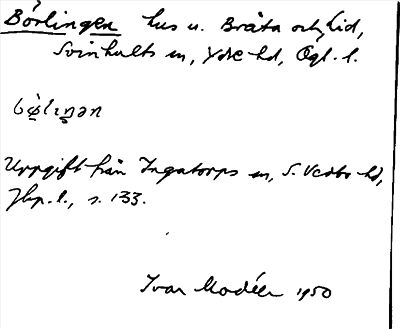 Börlingen hus u. Bråta och Lid,
Svinhults sn, Ydre hd, Ögl. l.
Uppgift från Ingatorps sn, S. Vedbo hd,
Jkp. l., s. 133.
Ivar Modéer 1950